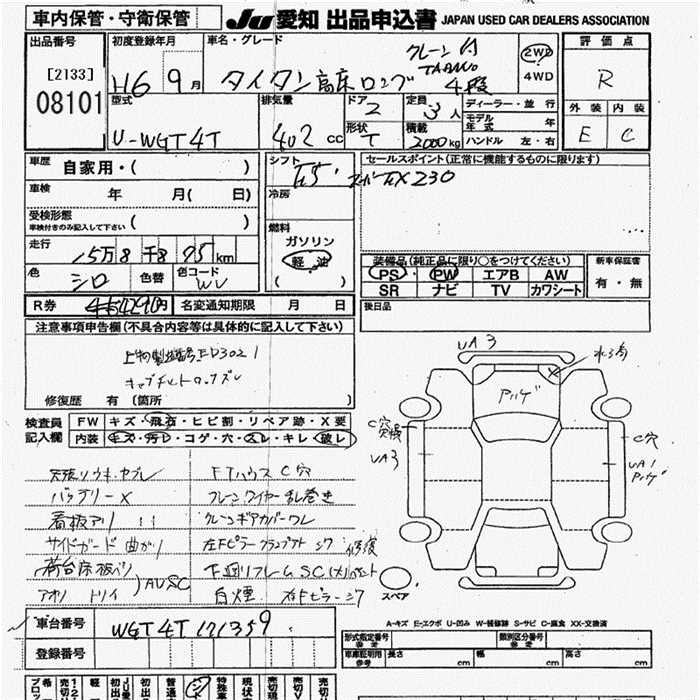 車内保管・守衛保管
JU愛知 出品申込書 JAPAN USED CAR DEALERS ASSOCIATION
出品番号
[2133]
08101
初度登録年月
H6 9月
車名・グレード
クレーン付
TADANO
タイタン高床ロング 4段
2WD
4WD
評価点
R
外装 内装
E C
型式
U-WGT4T
排気量
402 cc
ドア
2
形状
T
定員
3人
積載
2000kg
ディーラー・並行
モデル年式 年
ハンドル 左・右
車歴 自家用・( )
車検 年 月( 日)
受検形態
車検付きのみ記入して下さい ( )
走行 15万8千8 95km
色 シロ 色替 色コード WV
R券 4290円 名変通知期限 月 日
シフト
F5
冷房
燃料
ガソリン
軽油
( )
セールスポイント(正常に機能するものに限ります)
スーパーZX230
装備品(純正品に限り○をつけてください)
PS PW エアB AW
SR ナビ TV カワシート
新車保証書
有・無
後日品
注意事項申告欄(不具合内容等は具体的に記入して下さい)
上物製造番号ED3021
キャブチルトロックズレ
修復歴 有 (箇所 )
検査員記入欄
FW キズ・飛石・ヒビ割・リペア跡・X要
内装 キズ・汚レ・コゲ・穴・スレ・キレ・破レ
バッテリーX
看板アリ
サイドガード 曲がり
荷台床板ベリ
アオリ トリイ ) AUSC
FTハウス C穴
クレーンワイヤー乱巻き
クレーンギアカバーワレ
下回りフレームSC(大)
白煙
UA3
アルゲ
C穴
UA3
C穴
UA1
スペア
A-キズ E-エクボ U-凹み W-補修跡 S-サビ C-腐食 XX-交換済
車台番号 WGT4T 171359
登録番号
型式指定番号 参考
類別区分番号 参考
車庫証明用 参考 長さ cm 幅 cm 高さ cm